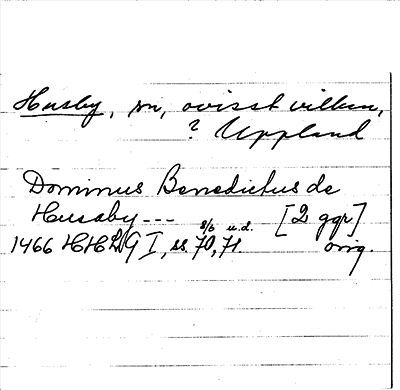 Husby, sn, ovisst vilken,
? Uppland
Dominus Benedictus de
Husaby --- [2 ggr]
8/6 u.d.
1466 HH I, ss. 70, 71. orig.